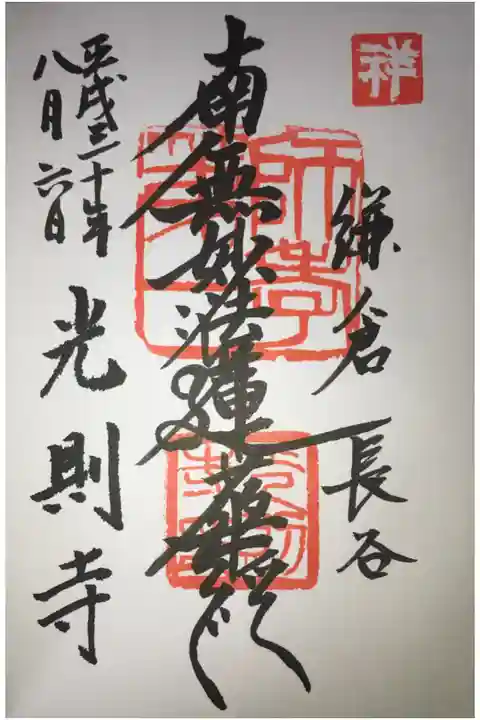 祥
鎌倉 長谷
南無妙法蓮華経
平成三十年
八月六日
光則寺